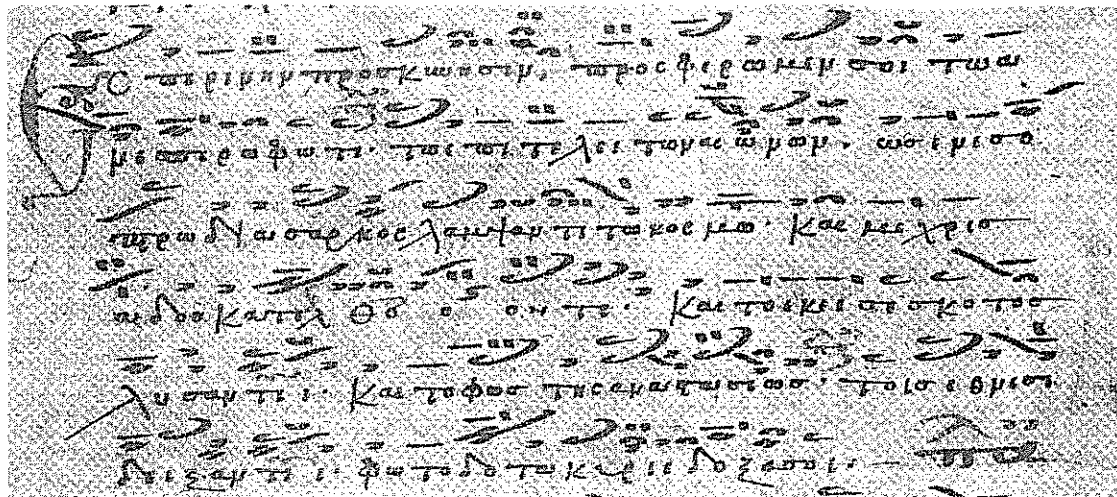 Εσπερινην προσκυνησιν, προσφερομεν σοι τω αν
νεσπερω φωτι. τω επι τελει των αιωνων. ως εν εσο
πτρω δια σαρκος λαμψαντι τω κοσμω. και μεχρις
αδου κατελθο ο οντι. και το εκεισε σκοτος
λυσαντι ι. και το φως της αναστασεως. τοις εθνεσι
δειξαντι ι. φωτοδοτα κυριε δοξα σοι.